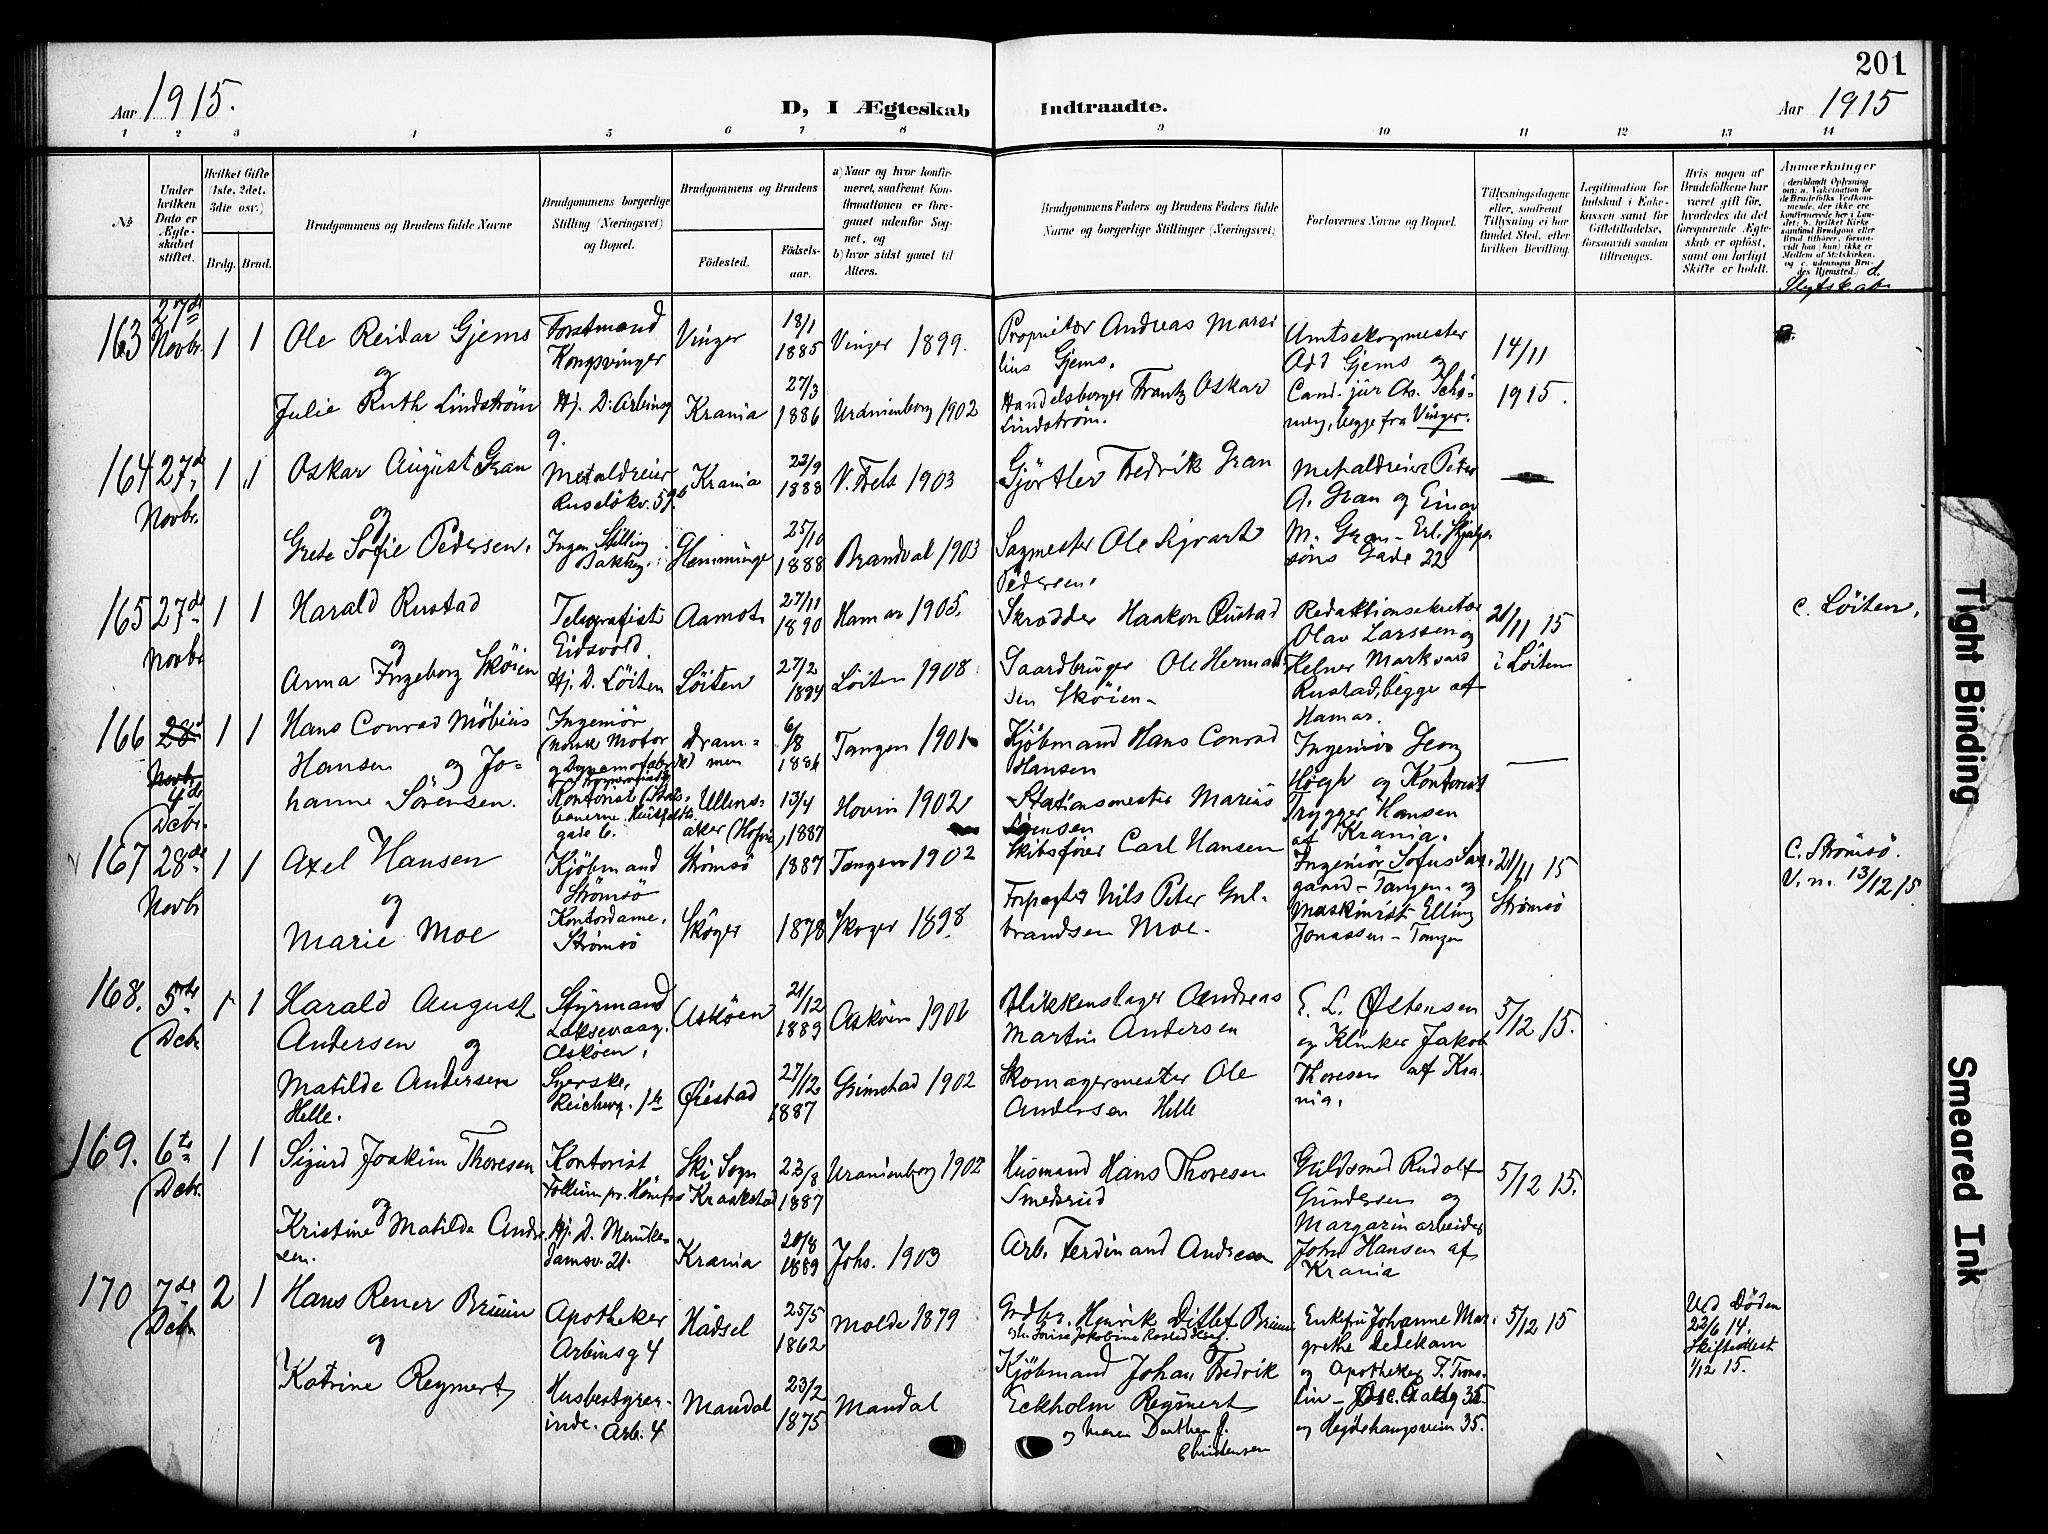 201
Aar 1915.
D, I Ægteskab Indtraadte.
Aar 1915
1 2 3 4 5 6 7 8 9 10 11 12 13 14
No
Under hvilken Dato er Ægteskabet stiftet.
Hvilket Gifte (1ste, 2det, 3die osv.)
Brdg. Brud.
Brudgommens og Brudens fulde Navne
Brudgommens borgerlige Stilling (Næringsvei) og Bopæl.
Brudgommens og Brudens
Födested.
Födsels-aar.
a) Naar og hvor konfirmeret, saafremt Konfirmationen er foregaaet udenfor Sognet, og
b) hvor sidst gaaet til Alters.
Brudgommens Faders og Brudens Faders fulde Navne og borgerlige Stillinger (Næringsvei)
Forlovernes Navne og Bopæl.
Tillysningsdagene eller, saafremt Tillysning ei har fundet Sted, efter hvilken Bevilling.
Legitimation for Indskud i Enkekassen samt for Giftetilladelse, forsaavidt saadan tiltrænges.
Hvis nogen af Brudefolkene har været gift för, hvorledes da det foregaaende Ægteskab er oplöst, samt om lovligt Skifte er holdt.
Anmærkninger
d. Slegtskab
163 27de Novbr. 1 1
Ole Reidar Gjems
og
Julie Ruth Lindström
Forstmand
Kongsvinger
Hj. D. Arbinsg
9.
Vinger
Krania
18/1
1885
27/3
1886
Vinger 1899.
Uranienborg 1902
Proprietær Andreas Marsi
lius Gjems.
Handelsborger Frantz Oskar
Lindström.
Amtsskogmester
Add Gjems og
Cand. jur Chr. Schö-
ning, begge fra Vinger.
14/11
1915.
164 27de Novbr. 1 1
Oskar August Gran
og
Grete Sofie Pedersen.
Metaldreier
Ruselökv. 59b
Ingen Stilling
Bakkeg.
Krania
22/9
1888
25/10
1888
V. Frels 1903
Brandval 1903
Gjörtler Fredrik Gran
Sagmester Ole Sigvart
Pedersen.
Metaldreier Peter
A. Gran og Einar
M. Gran - Erl. Skjalgs
söns Gade 22
165 27de Novbr 1 1
Harald Rustad
og
Anna Ingeborg Sköien
Telegrafist
Eidsvold.
Hj. D. Löiten
Aamot
Löiten
27/11
1890
27/2
1884
Hamar 1905.
Löiten 1908.
Skrædder Haakon Rustad
Gaardbruger Ole Herman
sen Sköien -
Redaktionsekretær
Olav Larssen og
Kelner Markvard
Rustad, begge af
Hamar.
21/11 15
i Löiten
c. Löiten.
166 28de Novbr 4de Dcbr. 1 1
Hans Conrad Möbius
Hansen og Jo-
hanne Sörensen.
Ingeniör
(Norsk Motor
og Dynamofabrik)
Kontorist (Stats-
banerne
gade 6.
Dram-
men
Ullens-
aker (Hovin)
6/8
1886
13/4
1887
Tangen 1901
Hovin 1902
Kjöbmand Hans Conrad
Hansen
Stationsmester Marius
Sörensen
Ingeniör Georg
Høegh og Kontorist
Trygger Hansen
af Krania.
167 28de Novbr 1 1
Axel Hansen
og
Marie Moe
Kjöbmand
Strömsö
Kontordame.
Strömsö
Strömsö
Skoger
1887
1878
Tangen 1902
Skoger 1898
Skibsfører Carl Hansen
Forpagter Nils Peter Gul-
brandsen Moe.
Ingeniör Sofus Saa-
gaard - Tangen og
Maskinist Elling
Jonassen - Tangen
21/11 15
Strømsö
C. Strömsö.
V. n. 13/12 15.
168. 5te Dcbr 1 1
Harald August
Andersen og
Matilde Andersen
Helle.
Styrmand
Laksevaag.
Askøen.
Syerske,
Reichwg. 1b
Askøen
Øiestad
21/12
1889
27/12
1887
Askøen 1906
Grimstad 1902
Blikkenslager Andreas
Martin Andersen
Skomagermester Ole
Andersen Helle
E. L. Østensen
og Klinker Jakob
Thoresen af Kra-
nia.
5/12 15.
169. 6te Dcbr 1 1
Sigurd Joakim Thoresen
og
Kristine Matilde Andre
sen.
Kontorist
Follum pr. Hönefos
Hj. D. Munke-
damsv. 21.
Ski Sogn
Kraakstad
Krania
23/8
1887
20/8
1889
Uranienborg 1902
Johs. 1903
Husmand Hans Thoresen
Smedsrud
Arb. Ferdinand Andresen
Guldsmed Rudolf
Gundersen og
Margarinarbeider
John Hansen af
Krania
5/12 15.
170 7de Dcbr 2 1
Hans Rener Bruun
og
Katrine Reymert
Apotheker
Arbinsg 4
Husbestyrer-
inde. Arb. 4
Hadsel
Mandal
25/5
1862
23/2
1875
Molde 1879
Mandal
Grdbr. Henrik Ditlef Bruun
Kjöbmand Johan Fredrik
Eckholm Reymert
og Maren Dorthea J.
Christensen
Enkefru Johanne Mar-
grethe Dedekam
og Apotheker T. Trons-
lin - Josefinesg 35
og Hegdehaugsveien 35.
5/12 15
Ved Döden
22/6 14.
Skifteattest
1/12 15.
Tight Binding
Smeared Ink